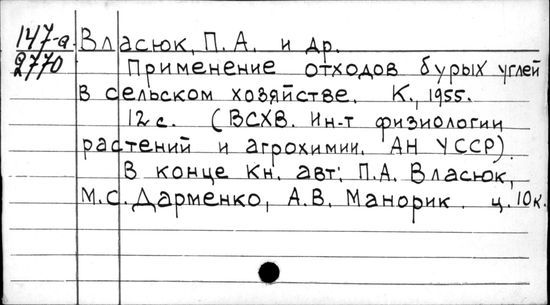 147-а Власюк, П.А. и др.
2770 Применение отходов бурых углей
в сельском хозяйстве. К., 1955.
12 с. (ВСХВ. Ин-т физиологии
растений и агрохимии. АН УССР).
В конце кн. авт: П.А. Власюк,
М.С. Дарменко, А.В. Манорик. ц. 10к.